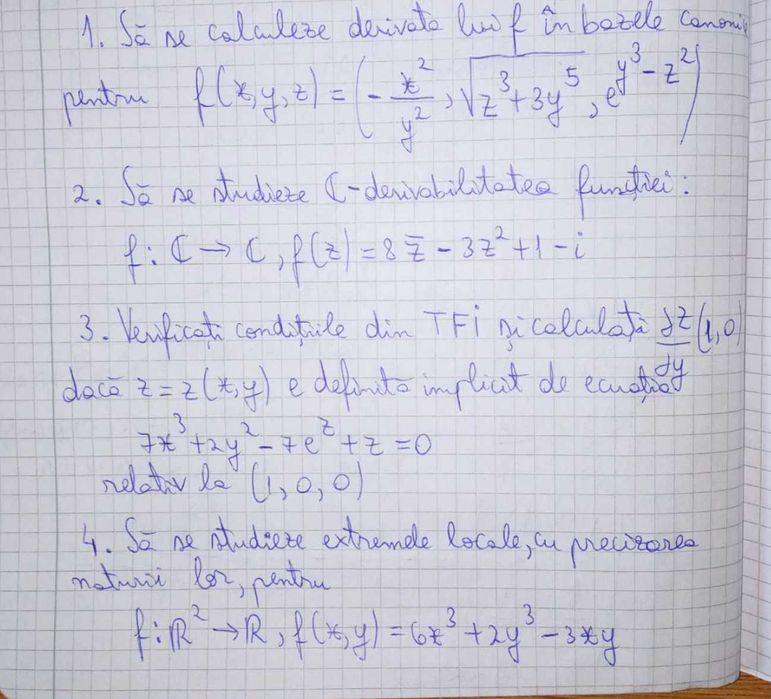 1. Să se calculeze derivata lui f în bazele canonic
pentru f(x,y,z) = (- x²/y², √(z³+3y⁵), e^(y³-z²))
2. Să se studieze ℂ-derivabilitatea funcției:
f: ℂ → ℂ, f(z) = 8z̄ - 3z² + 1 - i
3. Verificați condițiile din TFI și calculați ∂z/∂y (1,0)
dacă z = z(x,y) e definită implicit de ecuația
7x³ + 2y² - 7e^z + z = 0
relativ la (1, 0, 0)
4. Să se studieze extremele locale, cu precizarea
naturii lor, pentru
f: ℝ² → ℝ, f(x,y) = 6x³ + 2y³ - 3xy